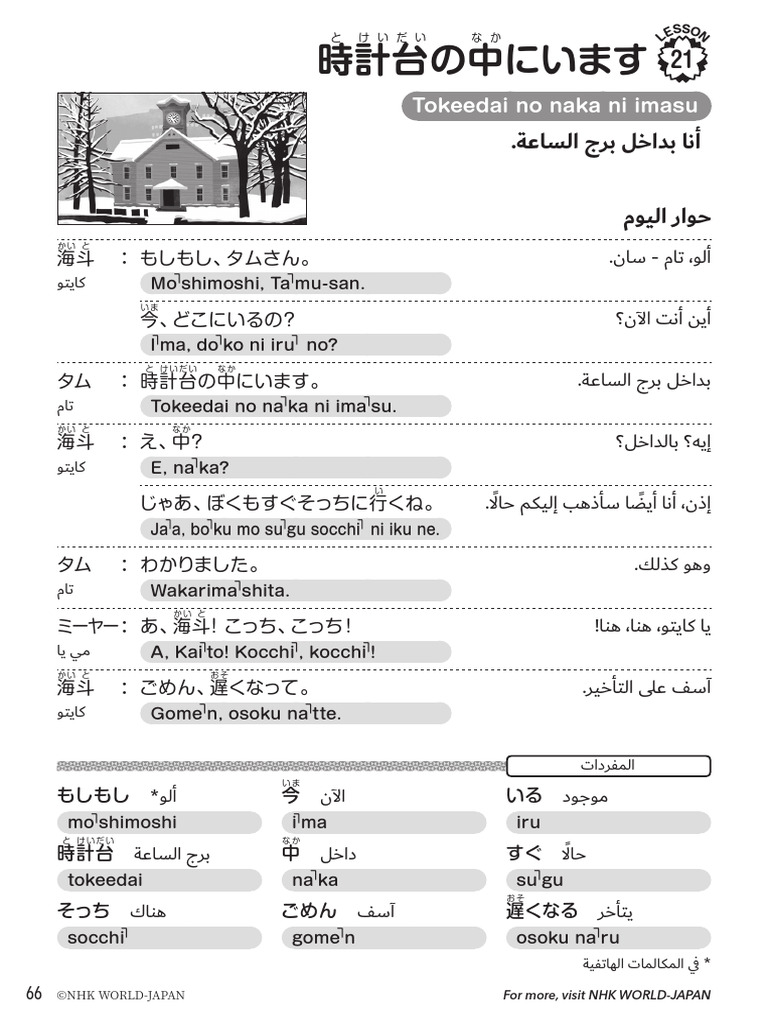 と けいだい なか
時計台の中にいます
LESSON
21
Tokeedai no naka ni imasu
أنا بداخل برج الساعة.
حوار اليوم
かい と
海斗 : もしもし、タムさん。 ألو، تام - سان.
كايتو Mo˥shimoshi, Ta˥mu-san.
いま
今、どこにいるの? أين أنت الآن؟
I˥ma, do˥ko ni iru˥ no?
と けいだい なか
タム : 時計台の中にいます。 بداخل برج الساعة.
تام Tokeedai no na˥ka ni ima˥su.
かい と なか
海斗 : え、中? إيه؟ بالداخل؟
كايتو E, na˥ka?
い
じゃあ、ぼくもすぐそっちに行くね。 إذن، أنا أيضًا سأذهب إليكم حالًا.
Ja˥a, bo˥ku mo su˥gu socchi˥ ni iku ne.
タム : わかりました。 وهو كذلك.
تام Wakarima˥shita.
かい と
ミーヤー: あ、海斗! こっち、こっち! يا كايتو، هنا، هنا!
مي يا A, Kai˥to! Kocchi˥, kocchi˥!
かい と おそ
海斗 : ごめん、遅くなって。 آسف على التأخير.
كايتو Gome˥n, osoku na˥tte.
المفردات
もしもし ألو*
mo˥shimoshi
いま
今 الآن
i˥ma
いる موجود
iru
と けいだい
時計台 برج الساعة
tokeedai
なか
中 داخل
na˥ka
すぐ حالًا
su˥gu
そっち هناك
socchi˥
ごめん آسف
gome˥n
おそ
遅くなる يتأخر
osoku na˥ru
* في المكالمات الهاتفية
66 ©NHK WORLD-JAPAN For more, visit NHK WORLD-JAPAN